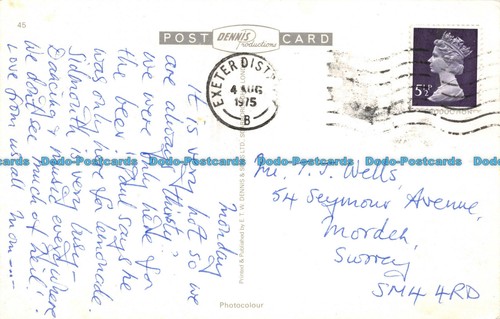 45
POST CARD
DENNIS
Productions
EXETER DIST
4 AUG
1975
B
5½P
Monday
It is very hot so we
are always thirsty,
we were only here for
the beer! Paul says he
was only here for lemonade.
Sidmouth is very busy -
Dancing & music everywhere
We don't see much of Neil!
Love from us all Mom
Printed & Published by E. T. W. DENNIS & SONS LTD.
LONDON
Mr. T. J. Wells,
54 Seymour Avenue,
Morden,
Surrey
SM4 4RD
Photocolour
Dodo-Postcards Dodo-Postcards Dodo-Postcards Dodo-Postcards Dodo-Postcards